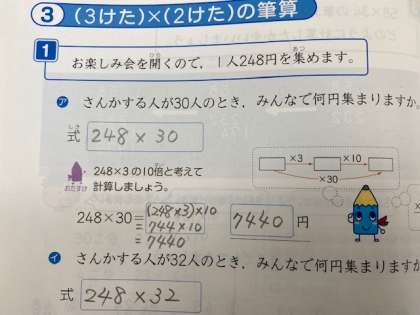 ③ (3けた)×(2けた)の筆算
1
お楽しみ会を開くので、1人248円を集めます。
㋐ さんかする人が30人のとき、みんなで何円集まりますか。
式 248×30
248×3の10倍と考えて
計算しましょう。
おたすけ
×3 ×10
×30
248×30=(248×3)×10
=744×10
=7440
7440 円
㋑ さんかする人が32人のとき、みんなで何円集まりますか
式 248×32